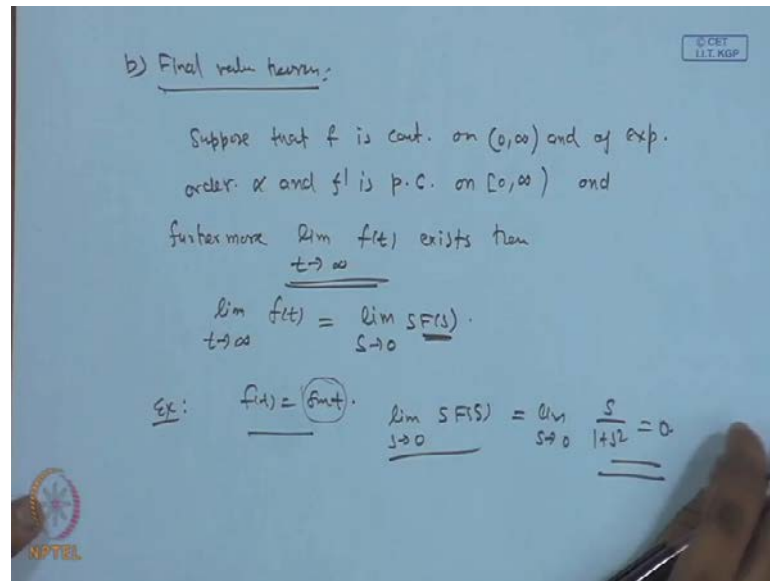 © CET
I.I.T. KGP
b) Final value theorem:
Suppose that f is cont. on (0,∞) and of exp.
order α and f' is p.c. on [0,∞) and
furthermore lim f(t) exists then
t→∞
lim f(t) = lim SF(S).
t→∞ S→0
Ex: f(t) = sint. lim SF(S) = lim S/(1+S²) = 0.
S→0 S→0
NPTEL